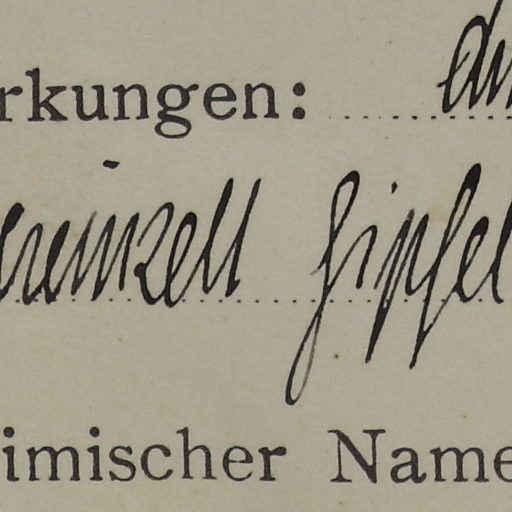 rkungen: du
ereinzelt Gipfel
imischer Name